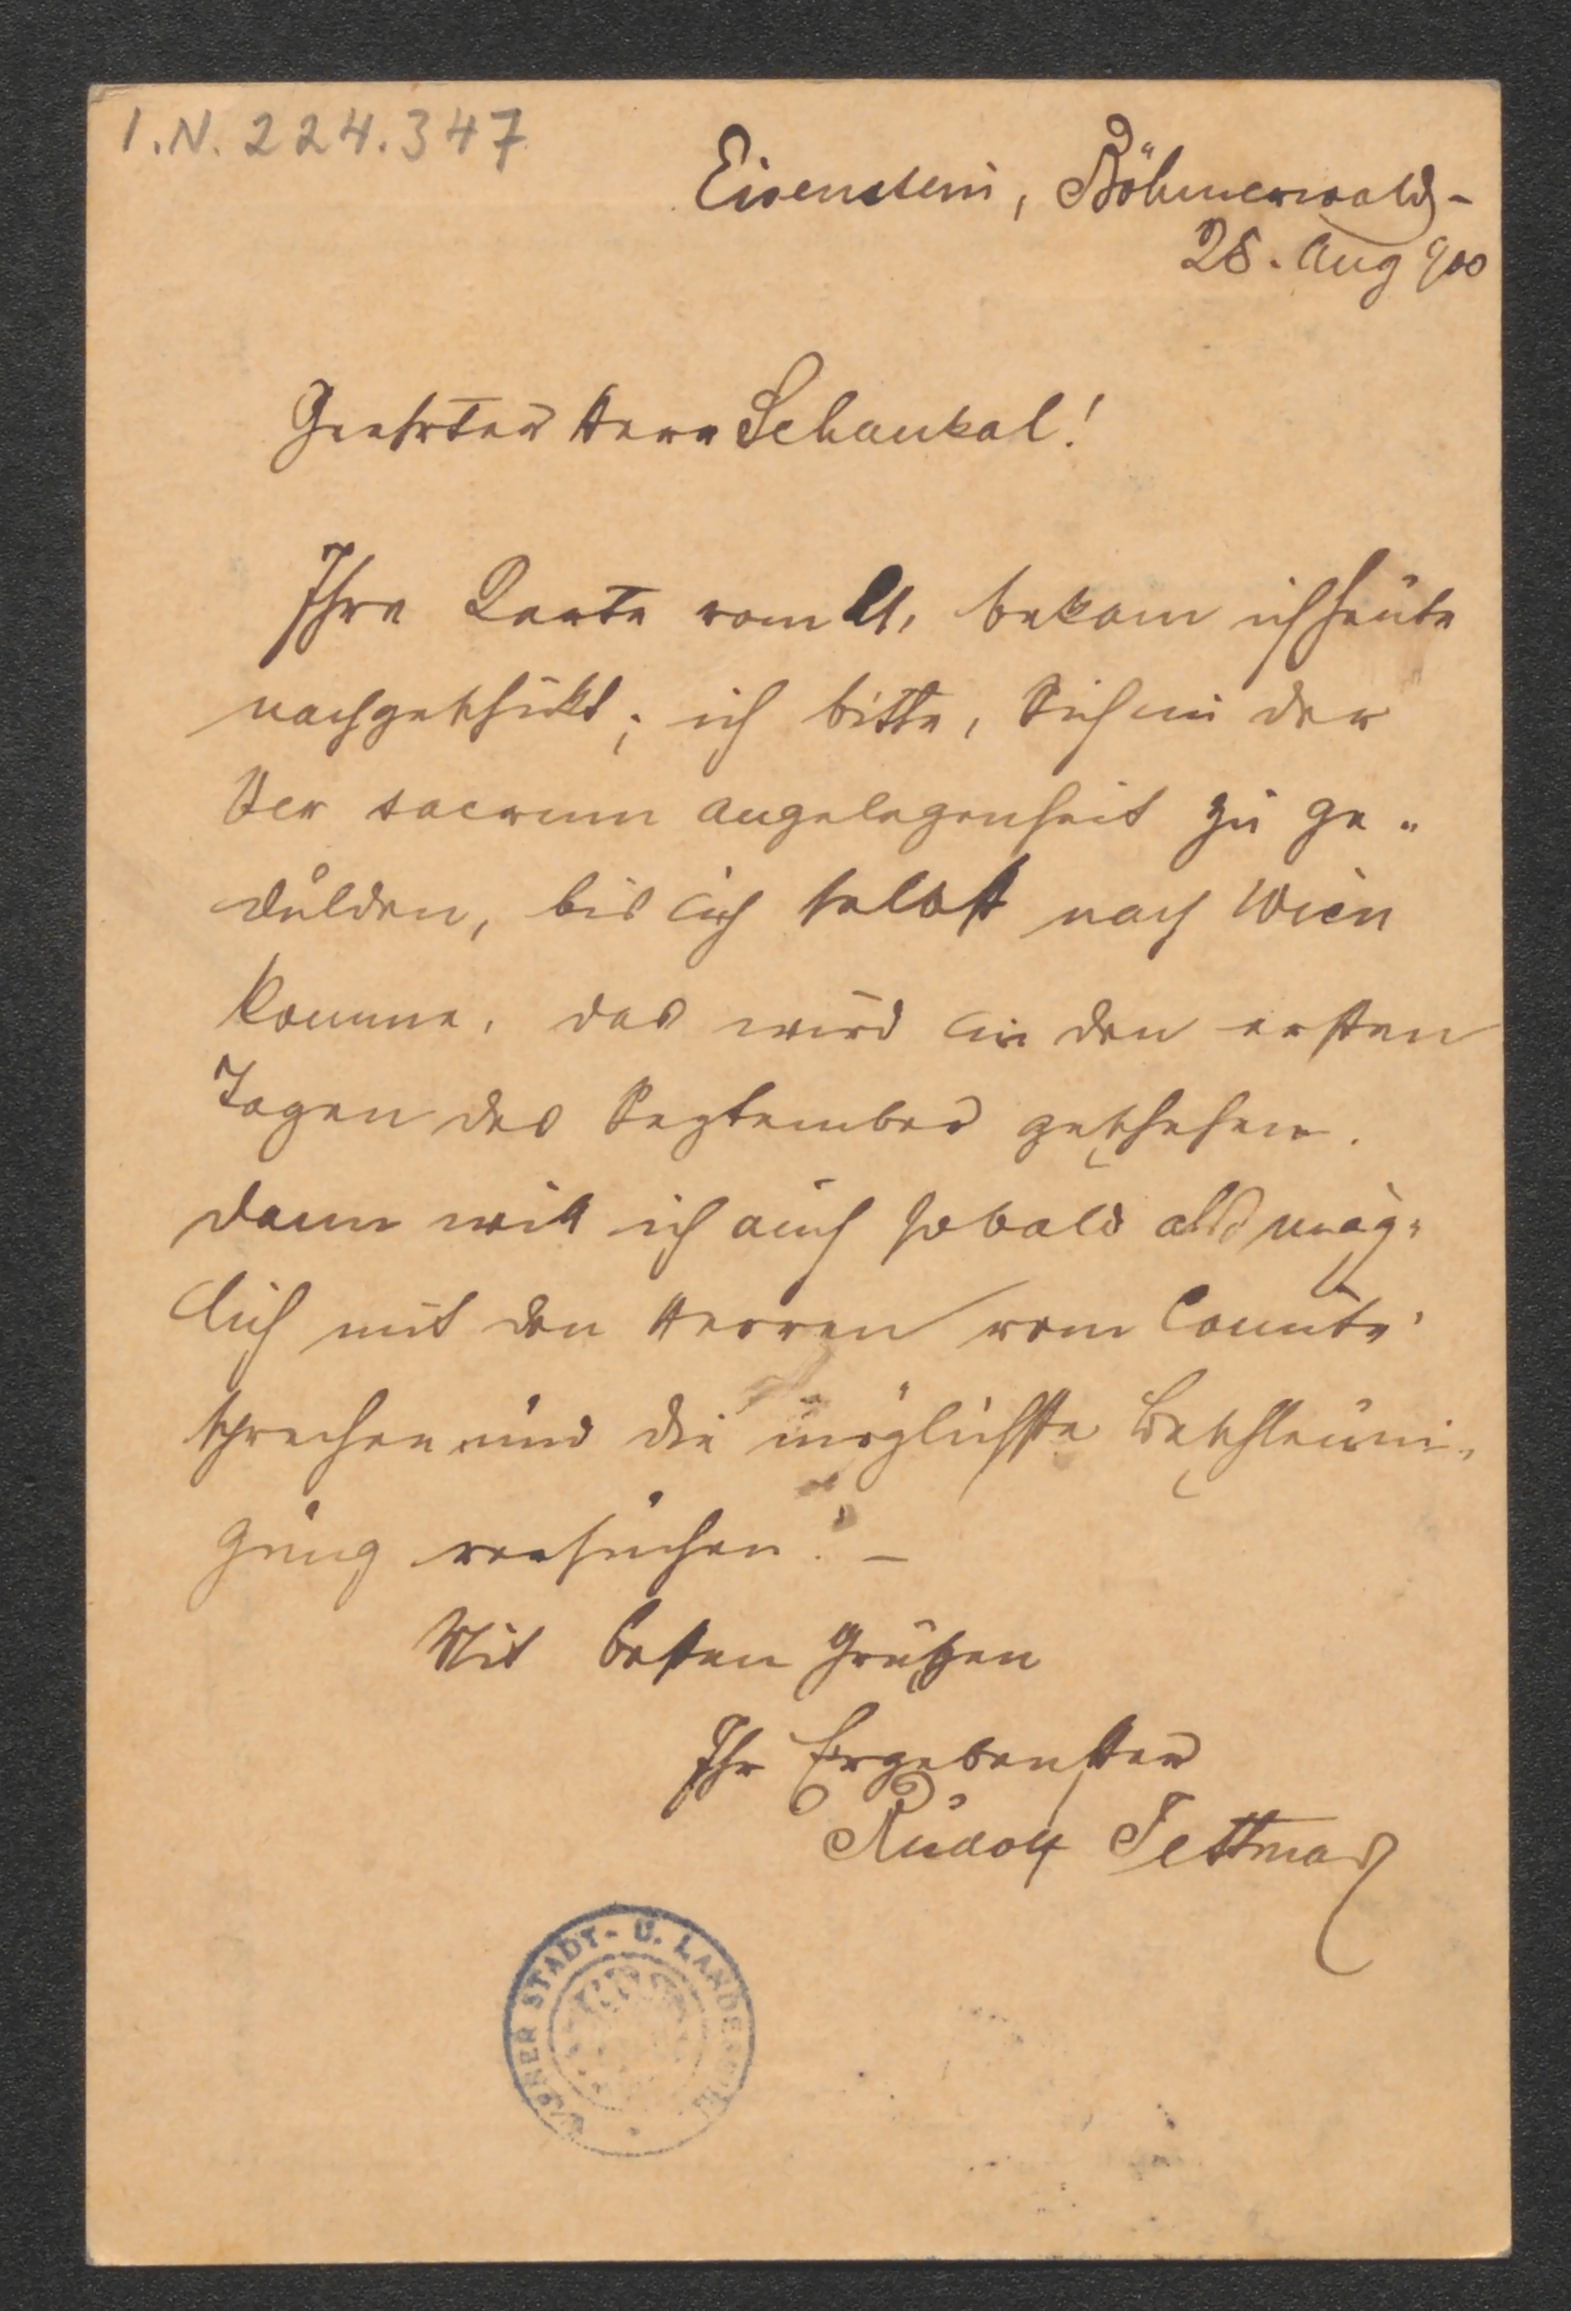 I.N. 224.347
Eisenstein, Böhmerwald -
28. Aug 900
Geehrter Herr Schaukal!
Ihre Karte vom 21. bekam ich heute
nachgeschickt; ich bitte, Sich in der
Ver sacrum angelegenheit zu ge-
dulden, bis ich selbst nach Wien
komme, das wird in den ersten
Tagen des September geschehen.
Dann will ich auch sobald als mög-
lich mit den Herren vom Comité
sprechen und die möglichste Beschleuni-
gung versuchen. –
Mit besten Grüßen
Ihr Ergebenster
Rudolf Jettmar
WIENER STADT- U. LANDES